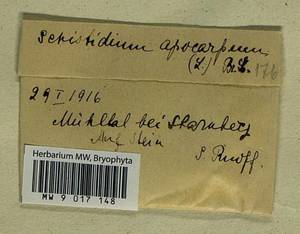 Schistidium apocarpum
(L.) B.S. 176
29 I 1916
Mühltal bei Starnberg
Auf Stein
Herbarium MW, Bryophyta
MW 9 017 148